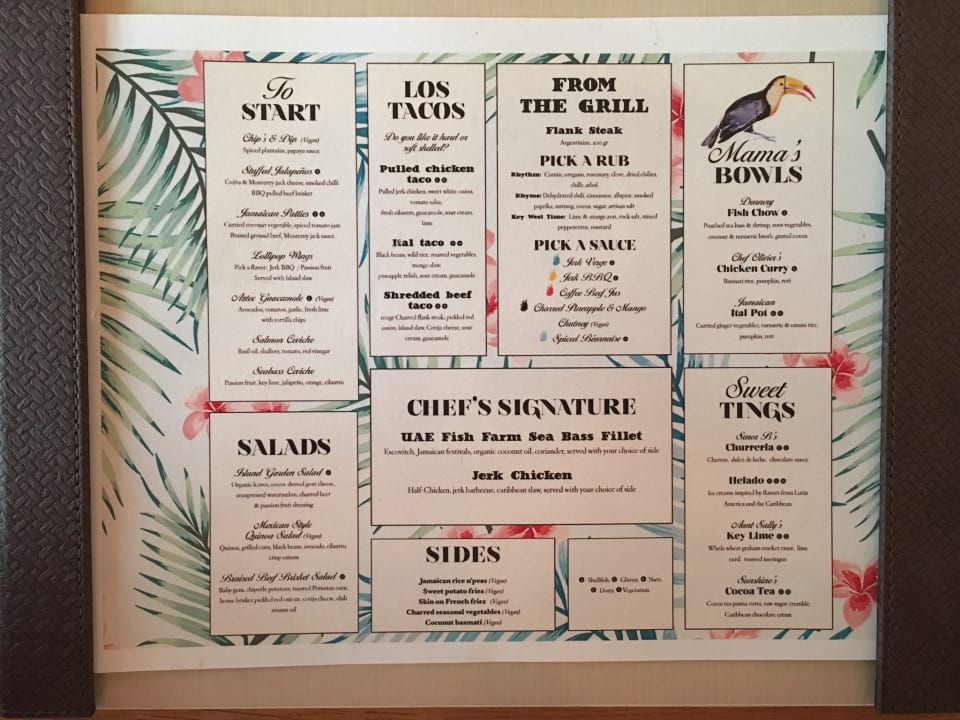 To
START
Chip's & Dip (Vegan)
Spiced plantains, papaya sauce
Stuffed Jalapeños
Cojita & Monterey jack cheese, smoked chilli
BBQ pulled beef brisket
Jamaican Patties
Curried coconut vegetable, spiced tomato jam
Braised ground beef, Monterey jack sauce
Lollipop Wings
Pick a flavor: Jerk BBQ / Passion fruit
Served with island slaw
Aztec Guacamole (Vegan)
Avocados, tomatos, garlic, fresh lime
with tortilla chips
Salmon Ceviche
Basil oil, shallots, tomato, red vinegar
Seabass Ceviche
Passion fruit, key lime, jalapeño, orange, cilantro
SALADS
Island Garden Salad
Organic leaves, cocoa dusted goat cheese,
compressed watermelon, charred beet
& passion fruit dressing
Mexican Style
Quinoa Salad (Vegan)
Quinoa, grilled corn, black beans, avocado, cilantro,
crisp onions
Braised Beef Brisket Salad
Baby gem, chipotle potatoes, toasted Peruvian corn,
house brisket pickled red onions, cotija cheese, chili
sesame oil
LOS
TACOS
Do you like it hard or
soft shelled?
Pulled chicken
taco
Pulled jerk chicken, sweet white onion,
tomato salsa,
fresh cilantro, guacamole, sour cream,
lime
Ital taco
Black beans, wild rice, roasted vegetables,
mango slaw
pineapple relish, sour cream, guacamole
Shredded beef
taco
100gr Charred flank steak, pickled red
onion, island slaw, Cotija cheese, sour
cream, guacamole
FROM
THE GRILL
Flank Steak
Argentinian, 200 gr
PICK A RUB
Rhythm: Cumin, oregano, rosemary, clove, dried chilies,
chilli arbol
Rhyme: Dehydrated chili, cinnamon, allspice, smoked
paprika, nutmeg, cocoa, sugar, artisan salt
Key West Time: Lime & orange zest, rock salt, mixed
peppercorns, mustard
PICK A SAUCE
Jerk Verge
Jerk BBQ
Coffee Beef Jus
Charred Pineapple & Mango
Chutney (Vegan)
Spiced Béarnaise
Mama's
BOWLS
Dennery
Fish Chow
Poached sea bass & shrimp, root vegetables,
coconut & turmeric broth, grated cocoa
Chef Olivier's
Chicken Curry
Basmati rice, pumpkin, roti
Jamaican
Ital Pot
Curried ginger vegetables, turmeric & cumin rice,
pumpkin, roti
CHEF'S SIGNATURE
UAE Fish Farm Sea Bass Fillet
Escovitch, Jamaican festivals, organic coconut oil, coriander, served with your choice of side
Jerk Chicken
Half Chicken, jerk barbecue, caribbean slaw, served with your choice of side
SIDES
Jamaican rice n'peas (Vegan)
Sweet potato fries (Vegan)
Skin on French fries (Vegan)
Charred seasonal vegetables (Vegan)
Coconut basmati (Vegan)
Shellfish, Gluten Nuts,
Dairy, Vegetarian
Sweet
TINGS
Senor B's
Churreria
Churros, dulce de leche, chocolate sauce
Helado
Ice creams inspired by flavors from Latin
America and the Caribbean
Aunt Sally's
Key Lime
Whole wheat graham cracker crust, lime
curd, toasted meringue
Sunshine's
Cocoa Tea
Cocoa tea panna cotta, raw sugar crumble,
Caribbean chocolate crème